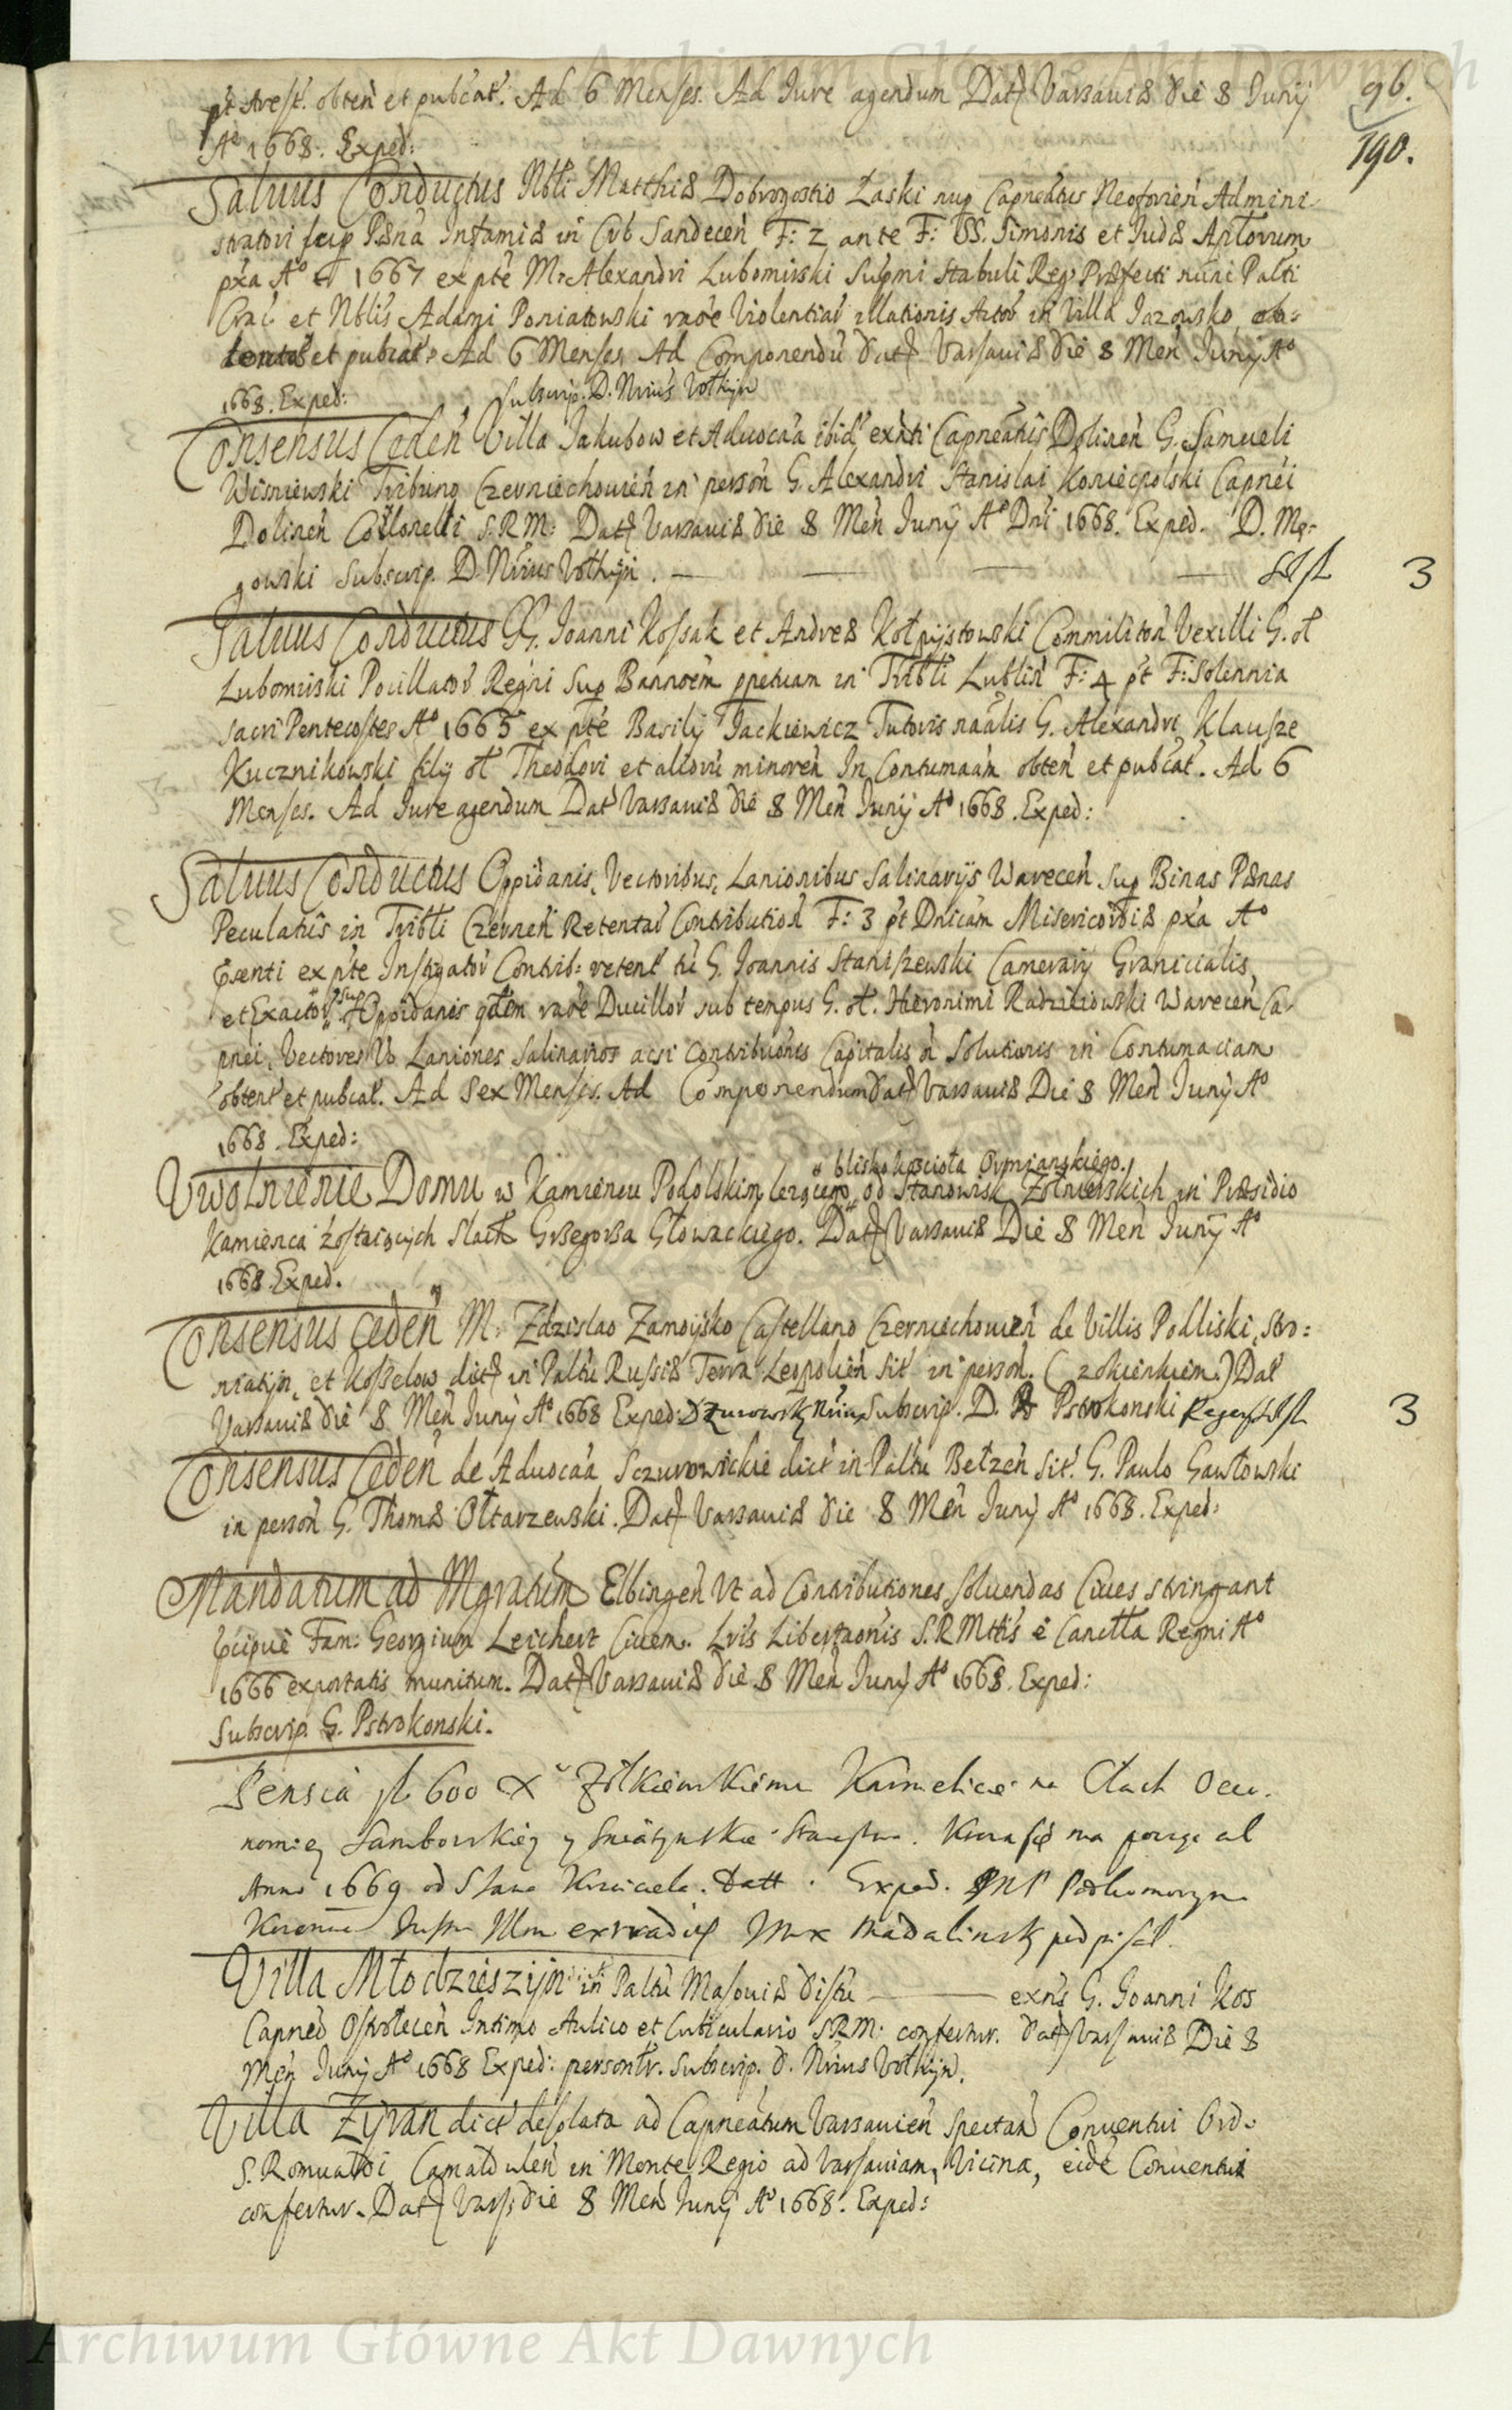 Archiwum Główne Akt Dawnych
96.
190.
obten et pubcat. Ad 6 Menses. Ad Iure agendum Datt Varsauiæ die 8 Junij
Aº 1668. Exped:
Saluus Conductus Nbli Matthiæ Dobrogostio Łaski nup Capneatus Neoforien Admini-
stratori sup Pæna Infamiæ in Crb Sandecen F: 2 ante F: SS. Simonis et Judæ Aptorum
pxa Aº 1667 ex pte M. Alexandri Lubomirski Supmi Stabuli Reg. Præfecti nunc Palti
Crac et Nblis Adami Poniatowski raoe Violentiar illationis Actor in Villa Jazowsko ob-
tentas et pubcat. Ad 6 Menses Ad Componendu datt Varsauiæ die 8 Men Junij Aº
1668. Exped: Subscrip. D. Nrius Vołhyn
Consensus Ceden Villa Jakubow et Aduocaa ibid exnti Capneatus Dolinen G. Samueli
Wisniewski Tribuno Czerniechouien in person G. Alexandri Stanislai Koniecpolski Capnei
Dolinen Collonelli S.R.M: Datt Varsauiæ die 8 Men Junij Aº Dni 1668. Exped. D. Mę-
gowski Subscrip. D. Nrius Vołhyn.
3
Saluus Conductus GG. Joanni Kossak et Andreæ Kołpijstowski Commiliton Vexilli G. ol
Lubomirski Pocillator Regni Sup Bannoem ppetuam in Tribli Lublin F: 4 pt F: Solennia
sacri Pentecostes Aº 1665 ex pte Basilij Jackiewicz Tutoris naalis G. Alexandri Klausze
Kucznikowski filij ol Theodori et aliorü minoren In Contumaam obten et pubcat. Ad 6
Menses. Ad Iure agendum Datt Varsauiæ die 8 Men Junij Aº 1668. Exped:
Saluus Conductus Oppidanis, Vectoribus, Lanionibus Salinarijs Warecen Sup Binas Pænas
Peculatus in Tribli Czernen Retentar Contribution F: 3 pt Dnicam Misericordiæ pxa Aº
pnti ex pte Instigator Contrib: retent tu G. Joannis Staniszewski Camerarij Granicialis
et Exactor sup Oppidanos qdem raoe Ducillor sub tempus G. ol. Hieronimi Radzieiowski Warecen Ca-
pnei, Vectores Vo Laniones Salinarios acsi Contribuonis Capitalis n Solutionis in Contumaciam
obtent et pubcat. Ad Sex Menses. Ad Componendum datt Varsauiæ Die 8 Men Junij Aº
1668. Exped:
blisko koscioła Ormianskiego
Vwolnienie Domu w Kamiencu Podolskim lezącego, od Stanowisk Zołnierskich in Præsidio
Kamienca zostaiących Slach Grzegorza Głowackiego. Datt Varsauiæ Die 8 Men Junij Aº
1668. Exped.
Consensus Ceden M. Zdzislao Zamoijsko Castellano Czerniechouien de Villis Podliski, Stro-
niatyn, et Koszelow dict in Paltu Russiæ Terra Leopolien Sit in person. (z okienkiem.) Dat
Varsauiæ die 8 Men Junij Aº 1668 Exped: D Zurowsky Subscrip. D. Pstrokonski Regens
3
Consensus Ceden de Aduocaa Sczurowickie dict in Paltu Bełzen Sit. G. Paulo Gawłowski
in person G. Thomæ Ołtarzewski. Datt Varsauiæ die 8 Men Junij Aº 1668. Exped:
Mandatum ad Mgratum Elbingen Vt ad Contributiones soluendas Ciues stringant
pcipue Fam: Georgium Leichert Ciuem. Lris Libertaonis S.R.Mttis e Cancella Regni Aº
1666 exportatis munitum. Datt Varsauiæ die 8 Men Junij Aº 1668. Exped:
Subscrip. G. Pstrokonski.
Pensia fl 600 X Zołkiewskiemu Karmelicie na Cłach Oeco-
nomiey Samborskiey y Sniatynskie Starostwa. Ktora się ma poczyc al
Anno 1669 od S Jana Krzciciela. Datt. Exped. Podkomorzym
Koronne extradidit Mx Madalinsky podpisał.
Villa Młodzieszijn in Paltu Masouiæ distu exns G. Joanni Kos
Capneo Ostrołecen Intimo Aulico et Cubiculario S.R.M: confertur. Datt Varsauiæ Die 8
Men Junij Aº 1668 Exped: personlr. Subscrip. D. Nrius Vołhyn.
Villa Zyran dict desolata ad Capneatum Varsauien Spectan Conuentui Ord:
S. Romualdi Camaldulen in Monte Regio ad Varsauiam, Vicina, eide Conuentui
confertur. Datt Vars: die 8 Men Junij Aº 1668. Exped:
Archiwum Główne Akt Dawnych